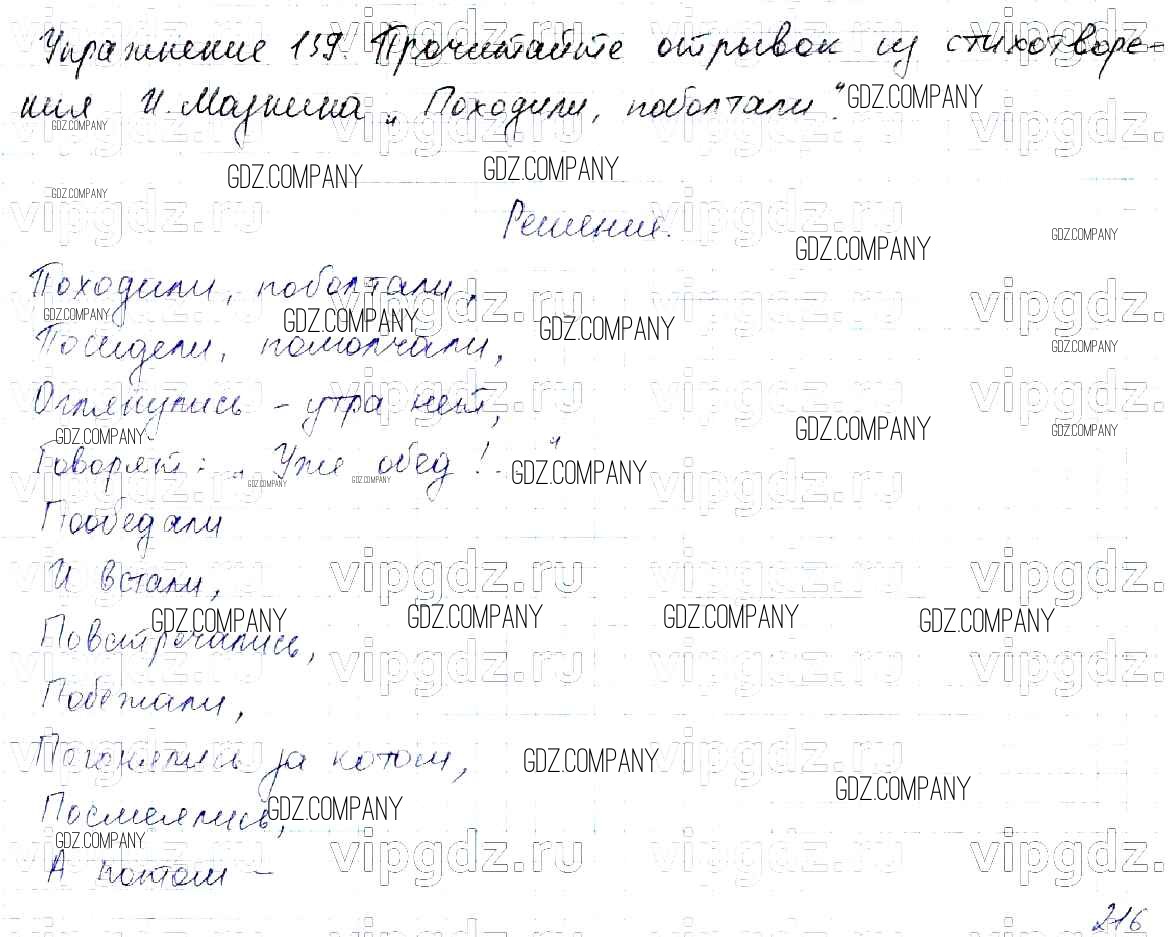 Упражнение 139. Прочитайте отрывок из стихотворе-
ния И. Мазнина „Походили, поболтали".
Решение.
Походили, поболтали,
Посидели, помолчали,
Оглянулись - утра нет,
Говорят: „Уже обед!..."
Пообедали
И встали,
Повстречались,
Побежали,
Погонялись за котом,
Посмеялись,
А потом -
216